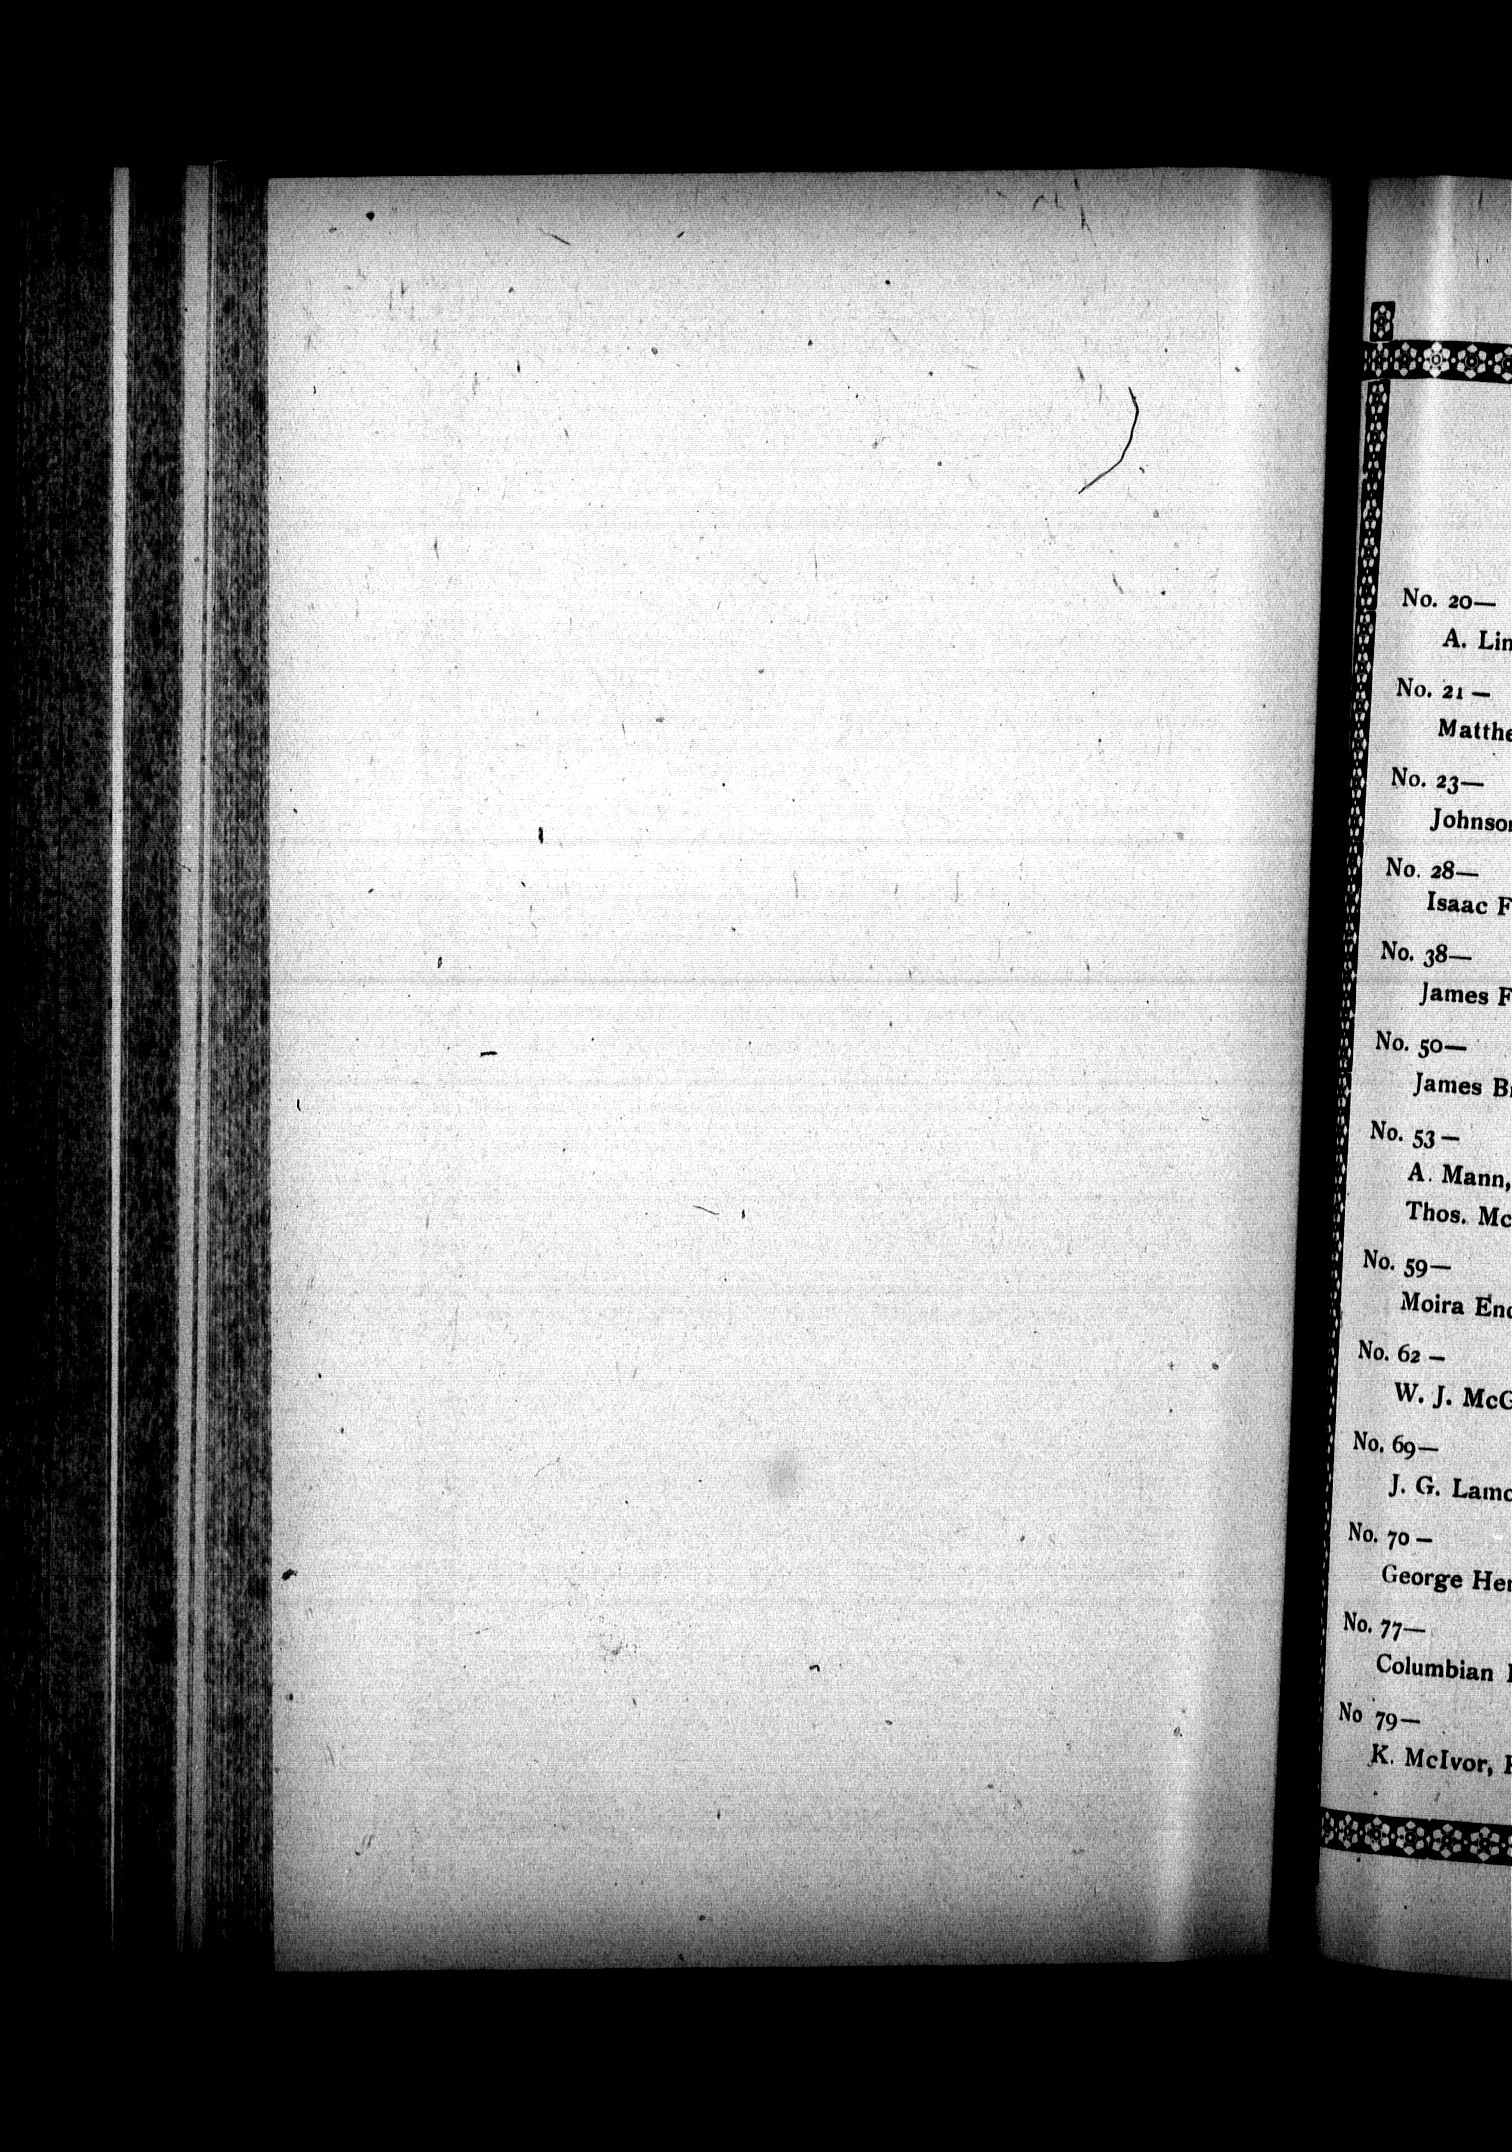 No. 20—
A. Lin
No. 21—
Matthe
No. 23—
Johnson
No. 28—
Isaac F
No. 38—
James F
No. 50—
James B
No. 53—
A. Mann,
Thos. Mc
No. 59—
Moira Enc
No. 62—
W. J. McG
No. 69—
J. G. Lamo
No. 70—
George Her
No. 77—
Columbian
No 79—
K. McIvor,